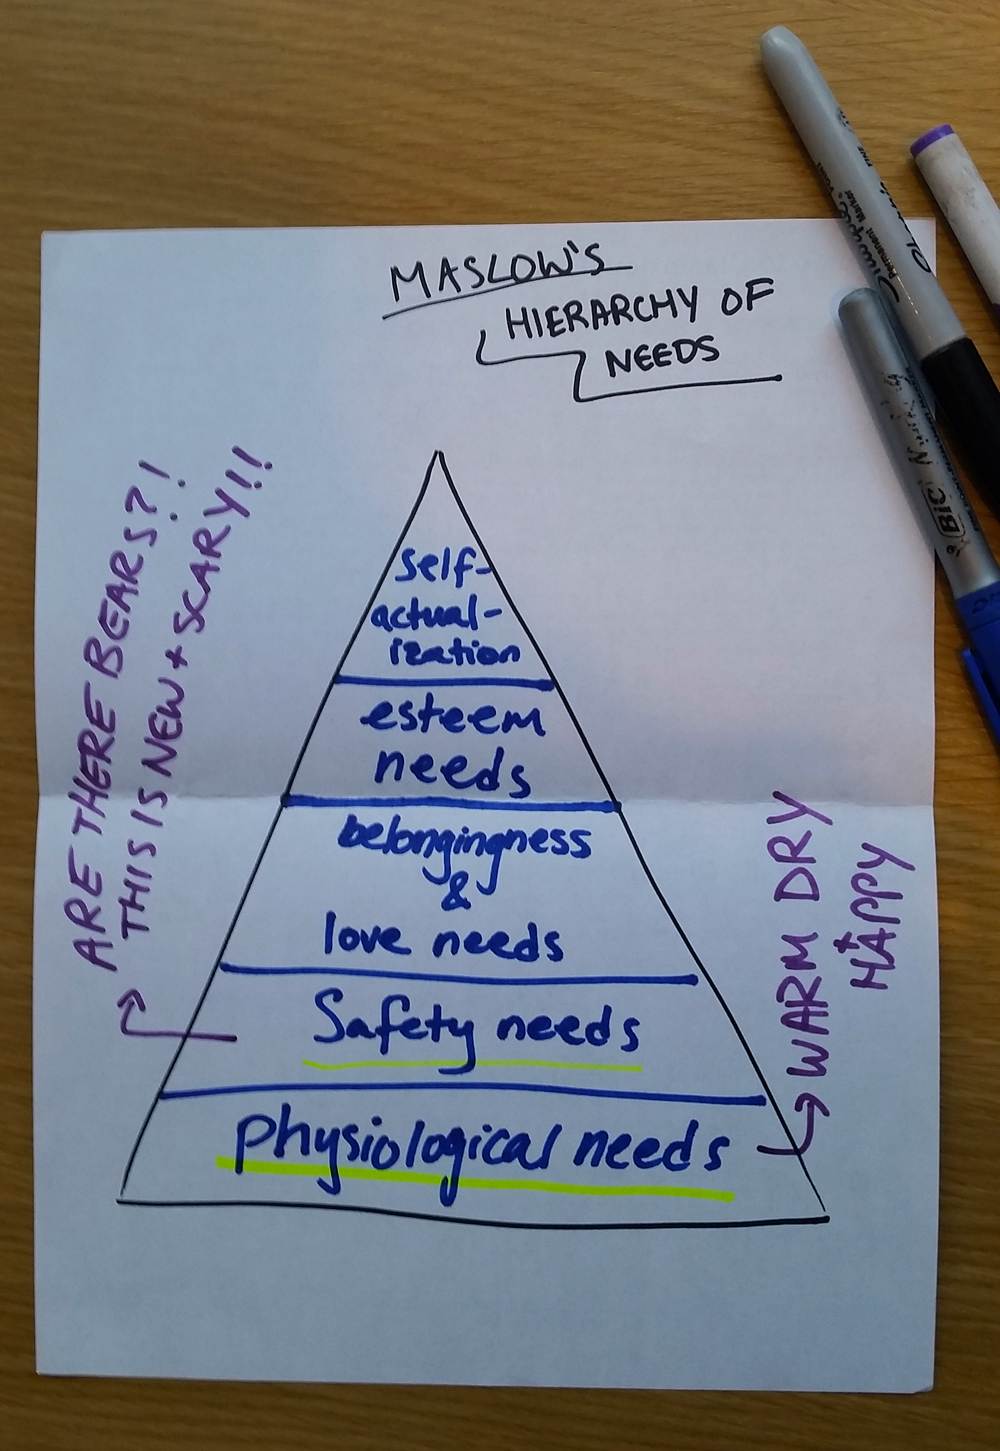 MASLOW'S
HIERARCHY OF
NEEDS
self-
actual-
ization
esteem
needs
belongingness
&
love needs
Safety needs
physiological needs
ARE THERE BEARS?!
THIS IS NEW + SCARY!!
WARM DRY
+ HAPPY
Sharpie
Permanent Marker
FINE POINT
BIC